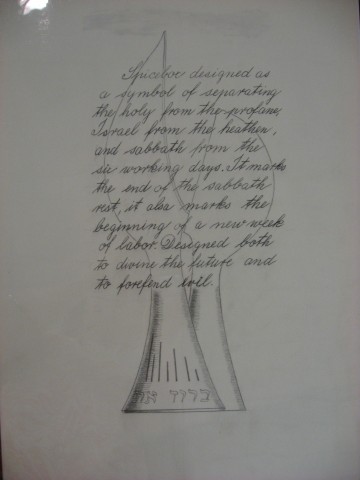 Spicebox designed as
a symbol of separating
the holy from the profane,
Israel from the heathen,
and sabbath from the
six working days. It marks
the end of the sabbath
rest, it also marks the
beginning of a new week
of labor. Designed both
to divine the future and
to forefend evil.